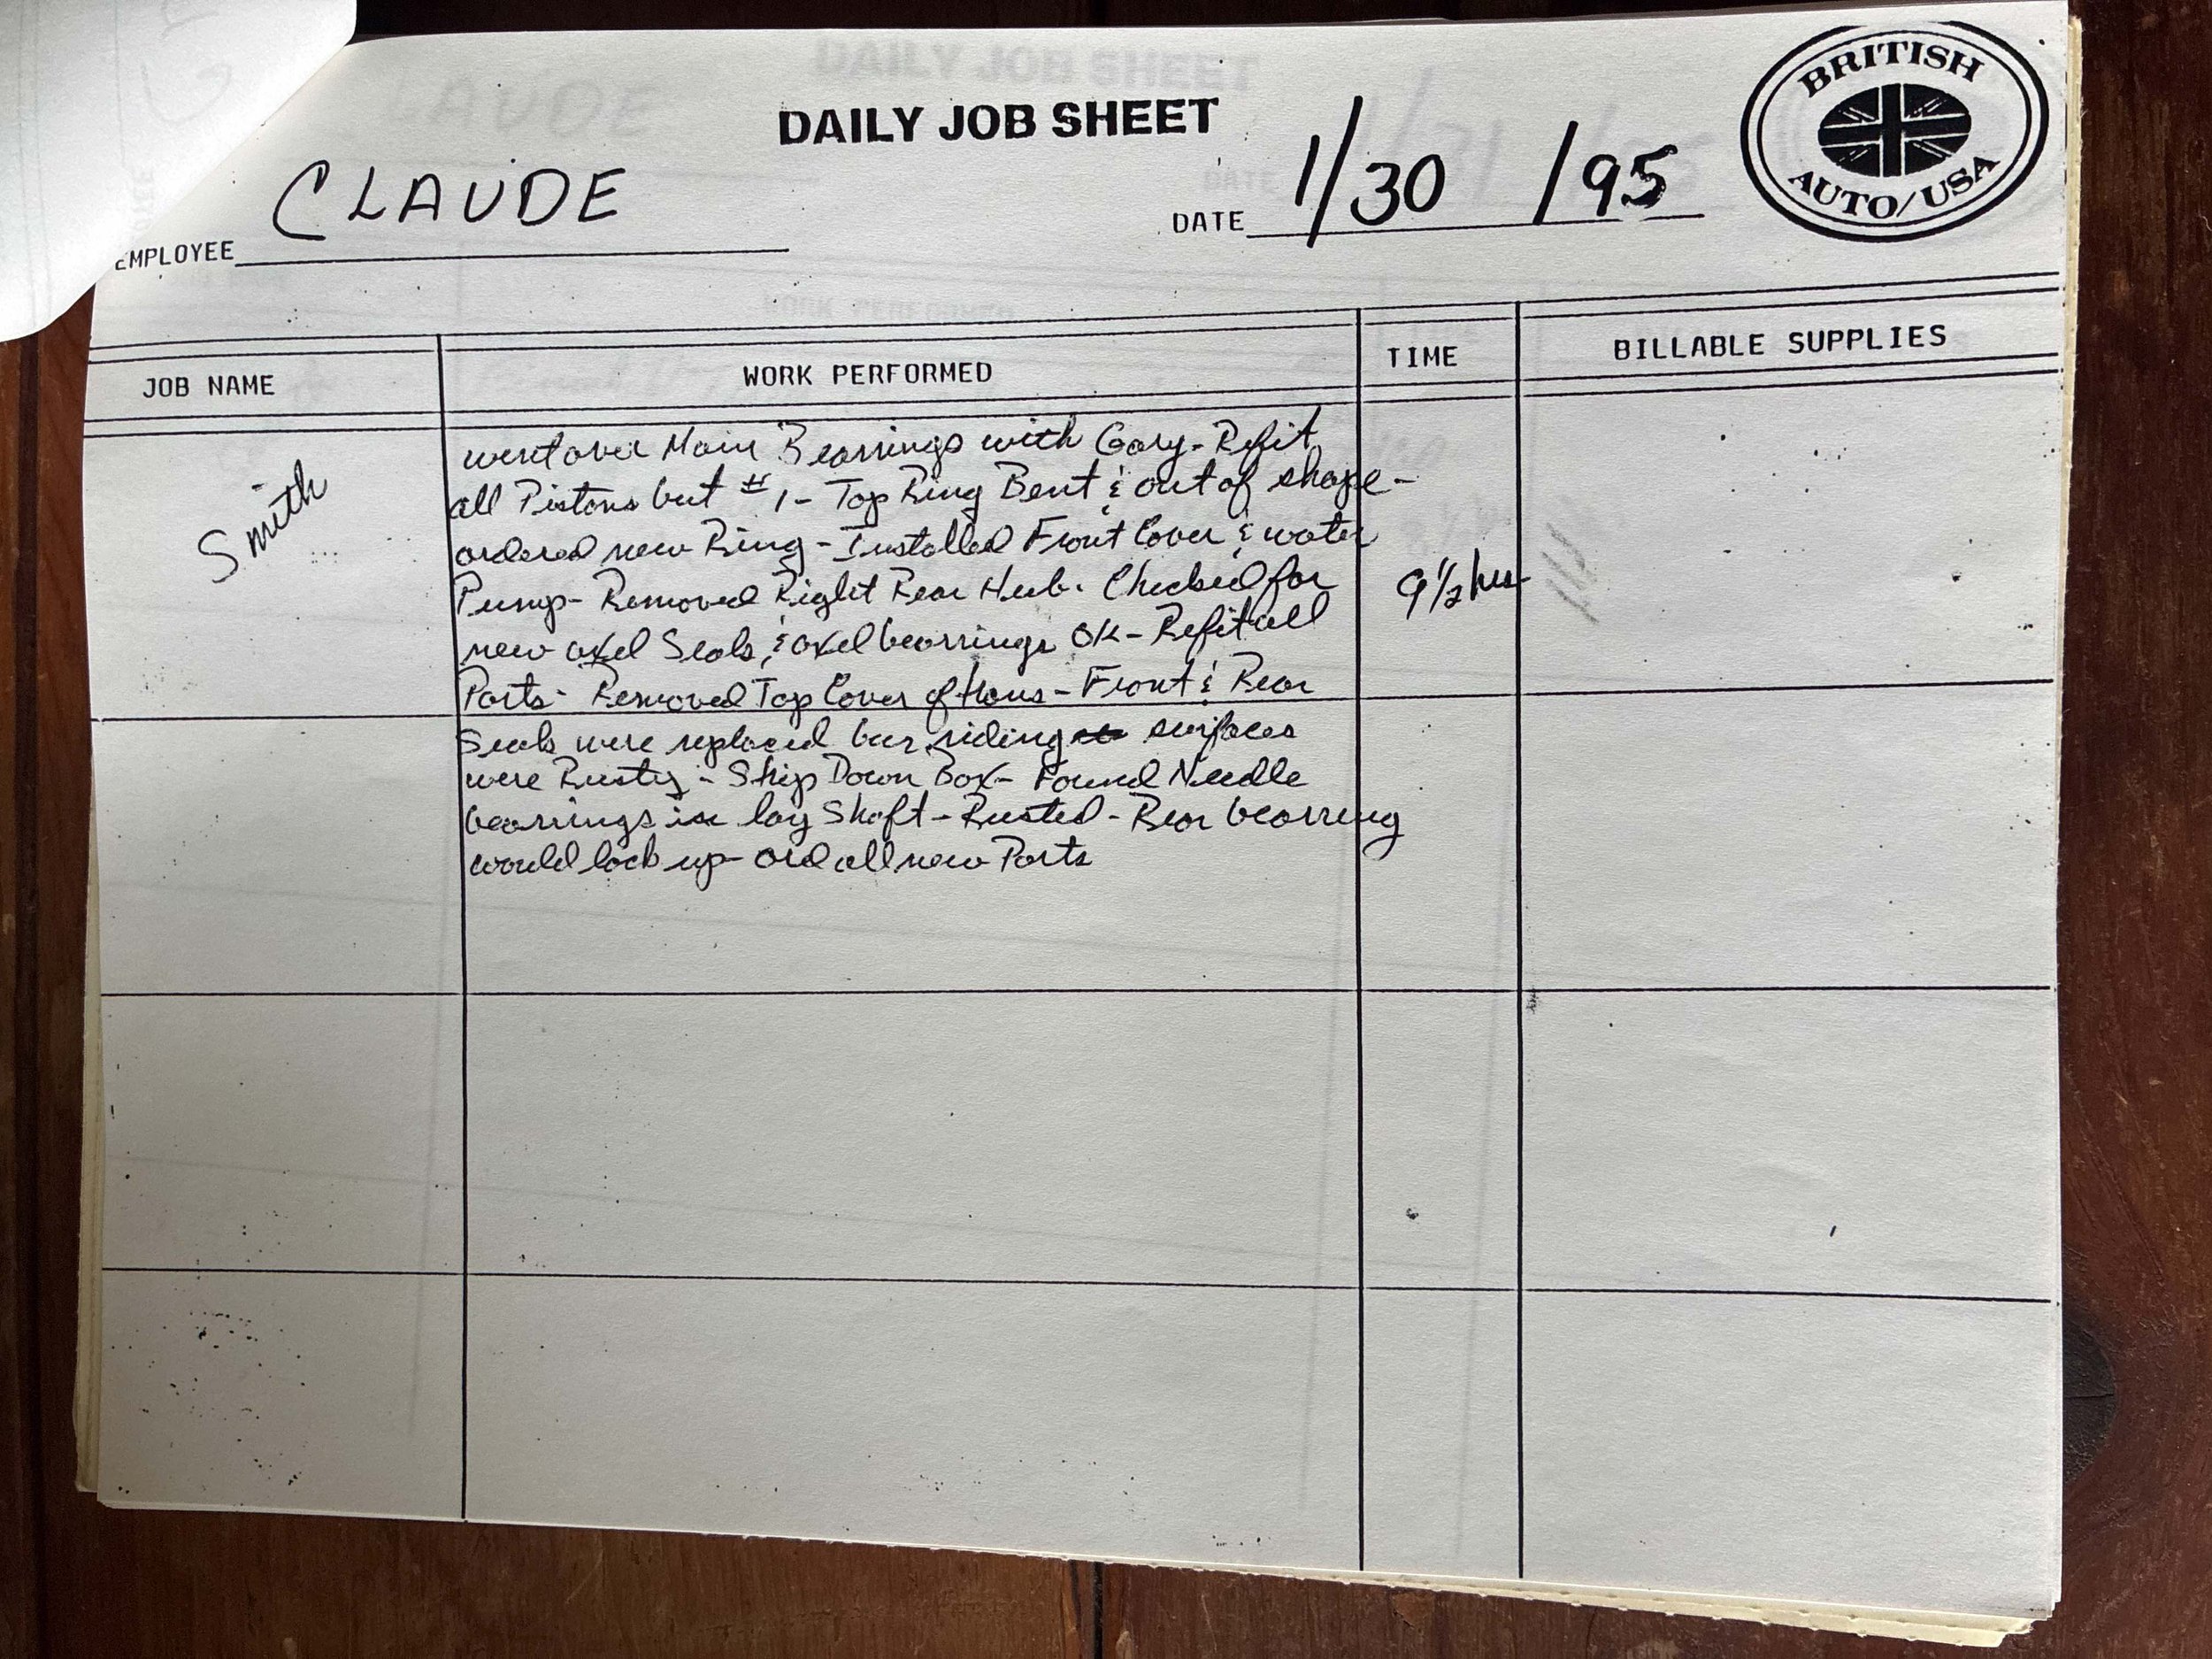 DAILY JOB SHEET
BRITISH
AUTO/USA
EMPLOYEE CLAUDE
DATE 1/30/95
JOB NAME
WORK PERFORMED
TIME
BILLABLE SUPPLIES
Smith
went over Main Bearrings with Gary - Refit
all Pistons but #1 - Top Ring Bent & out of shape -
ordered new Ring - Installed Front Cover & water
Pump - Removed Right Rear Hub. Checked for
new axel Seals, & axel bearrings OK - Refit all
Parts - Removed Top Cover of trans - Front & Rear
Seals were replaced but riding surfaces
were Rusty - Strip Down Box - Found Needle
bearrings in lay Shaft - Rusted - Rear bearring
would lock up - Ord all new Parts
9 1/2 hrs